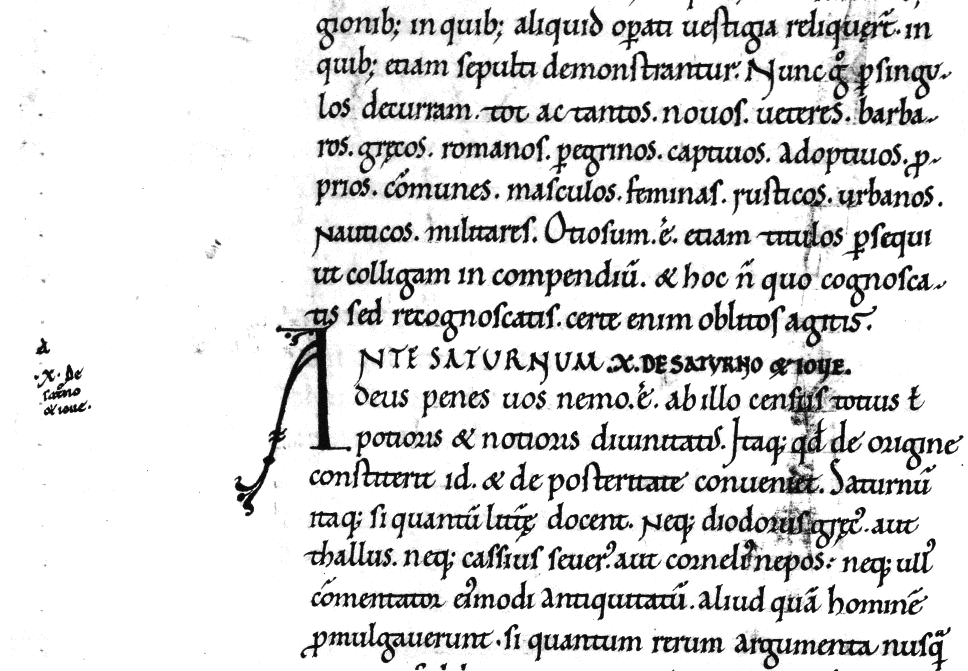 gionib; in quib; aliquid opati uestigia reliquer̄t. in
quib; etiam sepulti demonstrantur. Nunc g̊ ꝑsingu-
los decurram. tot ac tantos. nouos. ueteres. barba-
ros. gręcos. romanos. ꝑegrinos. captiuos. adoptiuos. ꝓ-
prios. cōmunes. masculos. feminas. rusticos. urbanos.
Nauticos. militares. Otiosum .ē. etiam titulos ꝑsequi
ut colligam in compendiū. & hoc n̄ quo cognosca-
tis sed recognoscatis. certe enim oblitos agitis.
ANTE SATURNUM .X. DE SATURNO & IOUE.
deus penes uos nemo .ē. ab illo census totius ł
potioris & notioris diuinitatis. Itaq; qd̄ de origine
constiterit id. & de posteritate conueniet. Saturnū
itaq; si quantū littīę docent. Neq; diodorus gręcꝰ. aut
thallus. neq; cassius seuerꝰ. aut corneliꝰ nepos. neq; ullꝰ
cōmentator eiꝰmodi antiquitatū. aliud quā hominē
ꝓmulgauerunt. si quantum rerum argumenta nusq̄
a
.X. De
satrno
& ioue.